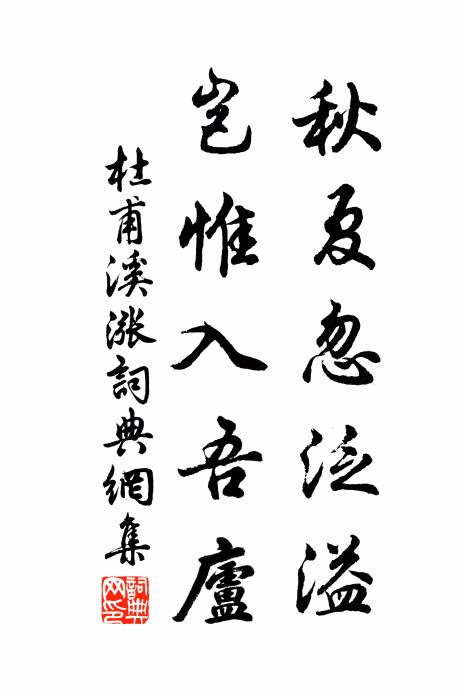 秋夏忽泛溢
豈惟入吾廬
杜甫溪漲詞典網集
詞典网印